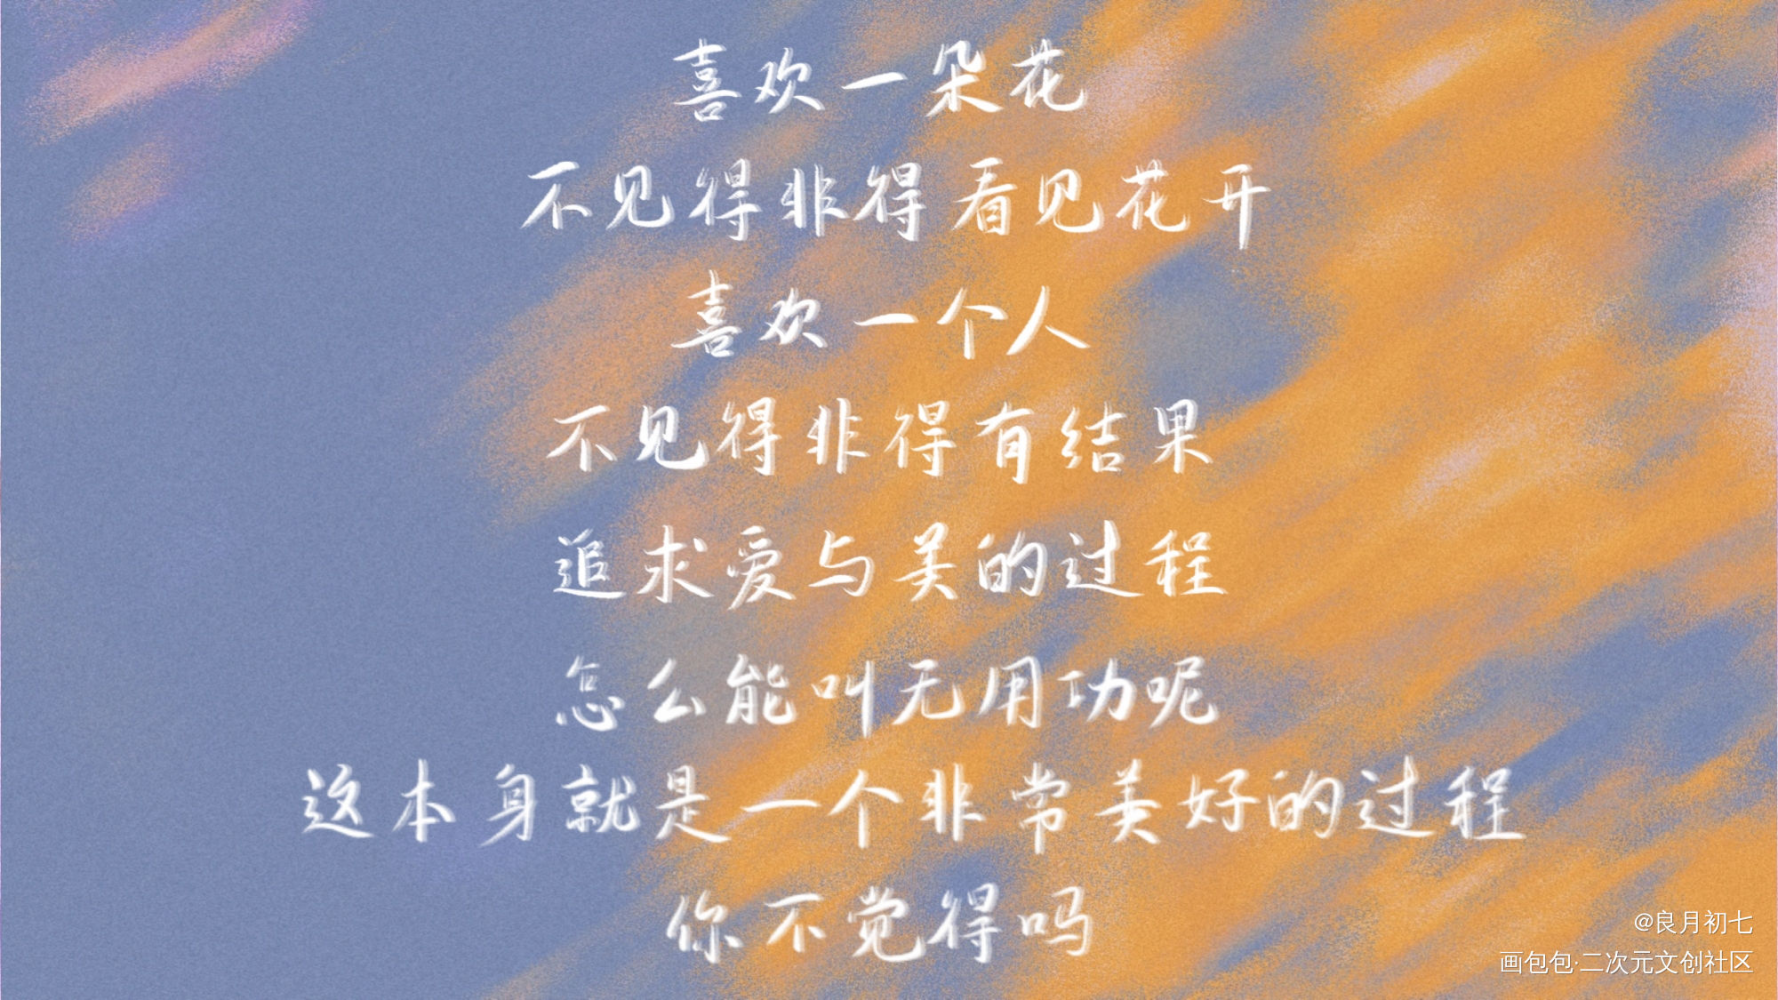 喜欢一朵花
不见得非得看见花开
喜欢一个人
不见得非得有结果
追求爱与美的过程
怎么能叫无用功呢
这本身就是一个非常美好的过程
你不觉得吗
@良月初七
画包包·二次元文创社区